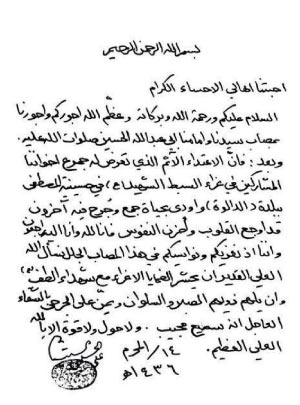 بسم الله الرحمن الرحيم
احبتنا اهالي الاحساء الكرام
السلام عليكم ورحمة الله وبركاته وعظّم الله اجوركم واجورنا
بمصاب سيدنا وامامنا ابي عبدالله الحسين صلوات الله عليه
وبعد: فانّ الاعتداء الآثم الذي تعرّض له جموع اخواننا
المشاركين في عزاء السبط الشهيد (ع) في حسينية المصطفى
ببلدة (الدالوة) واودى بحياة جمع وجُرح فيه آخرون
قد اوجع القلوب واحزن النفوس فانا لله وانا اليه راجعون
واننا اذ نعزيكم ونواسيكم في هذا المصاب الجلل نسأل الله
العلي القدير ان يحشر الضحايا الاعزاء مع شهداء الطف
وان يلهم ذويهم الصبر والسلوان ويمنّ على الجرحى بالشفاء
العاجل انه سميع مجيب. ولا حول ولا قوة الا بالله
العلي العظيم.
١٤/ المحرم
١٤٣٦ هـ